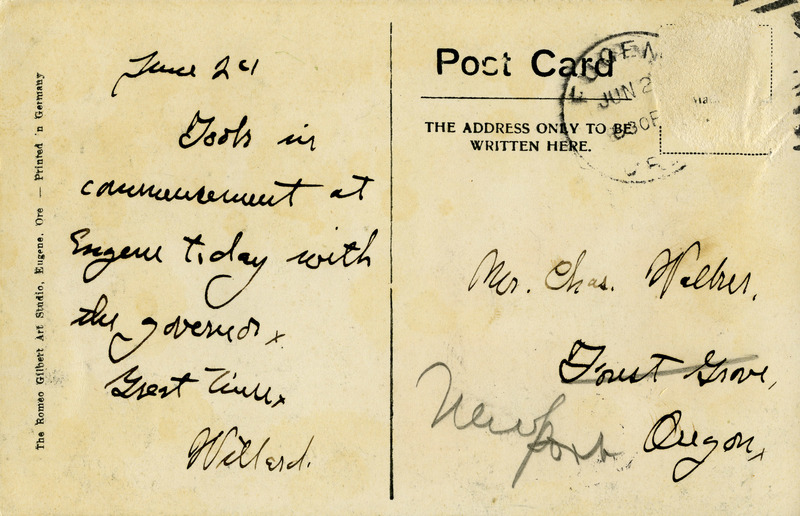 The Romeo Gilbert Art Studio, Eugene, Ore — Printed in Germany
June 24
Took in
commencement at
Eugene today with
the governor.
Great time.
Willard.
Post Card
THE ADDRESS ONLY TO BE
WRITTEN HERE.
EUGEN
JUN 2
830P
Mr. Chas. Walker,
Forest Grove,
Newport
Oregon.